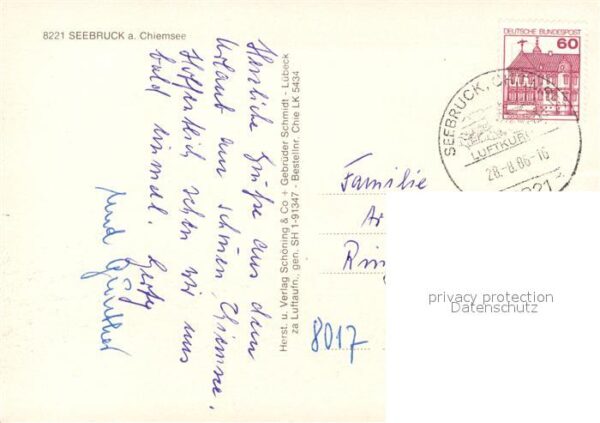 8221 SEEBRUCK a. Chiemsee
Herzliche Grüße aus dem
Urlaub am schönen Chimsee.
Hoffentlich sehen wir uns
bald einmal. Gerty
und Günther
Herst. u. Verlag Schöning & Co + Gebrüder Schmidt - Lübeck
za Luftaufn., gen. SH 1-91347 - Bestellnr. Chie LK 5434
DEUTSCHE BUNDESPOST
60
SEEBRUCK, CHIEMSEE
LUFTKUR
28.-8.86-16
8221
Familie
Ar
Rin
8017
privacy protection
Datenschutz